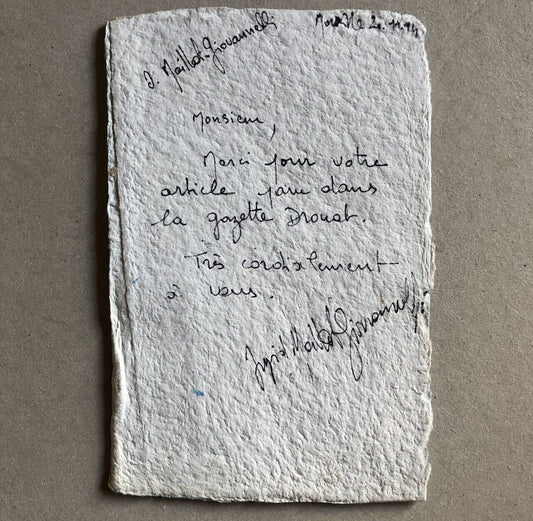 I. Maillet-Giovannelli
Monsieur,
Merci pour votre
article paru dans
la gazette Drouot.
Très cordialement
à vous.
Maillet Giovannelli